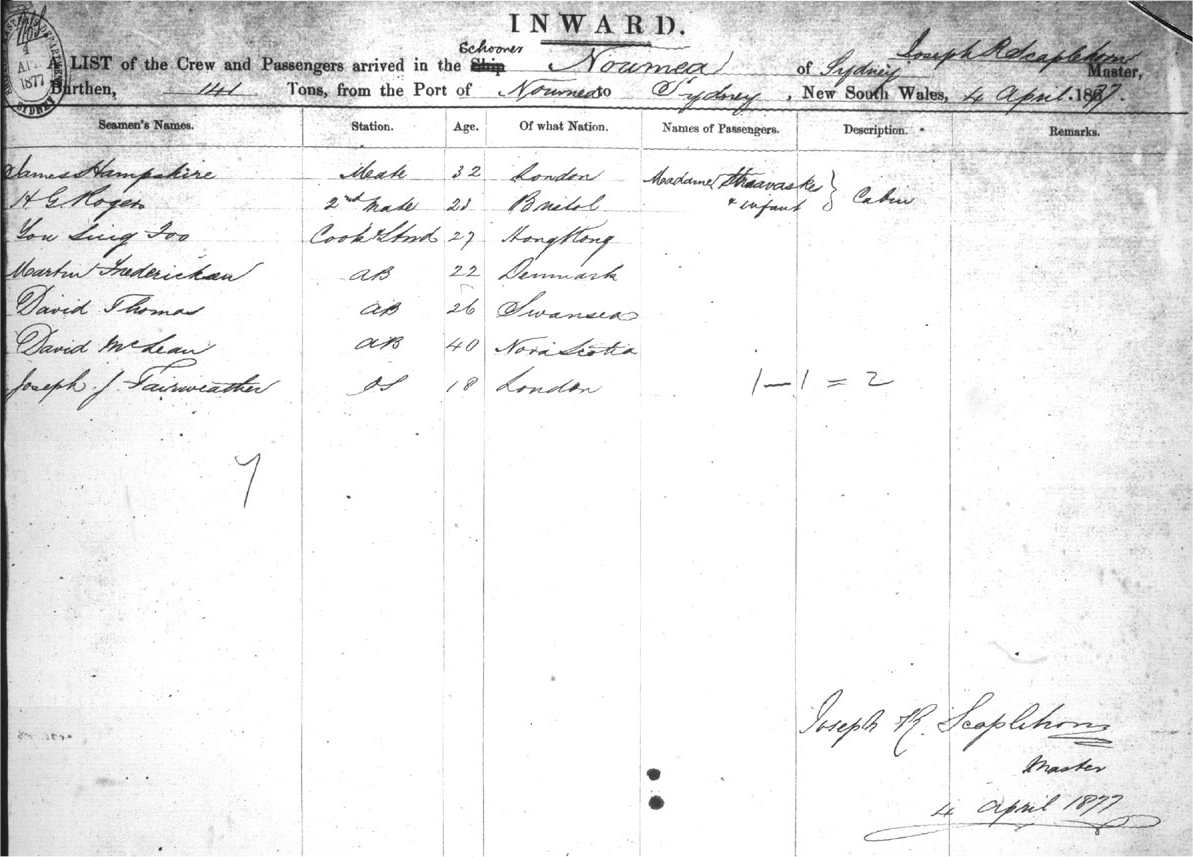 INWARD.
A LIST of the Crew and Passengers arrived in the Ship Schooner Noumea of Sydney Joseph R Scaplehorn Master,
Burthen, 141 Tons, from the Port of Noumea to Sydney, New South Wales, 4 April 1877.
Seamen's Names. Station. Age. Of what Nation. Names of Passengers. Description. Remarks.
James Hampshire Mate 32 London Madame & infant Cabin
H G Rogers 2nd Mate Bristol
You Sing Foo Cook & Stwd 27 Hong Kong
Martin Fredericksen AB 22 Denmark
David Thomas AB 26 Swansea
David McLean AB 40 Nova Scotia
Joseph J Fairweather OS 18 London 1 — 1 = 2
7
Joseph R. Scaplehorn
Master
4 April 1877
1877
SYDNEY